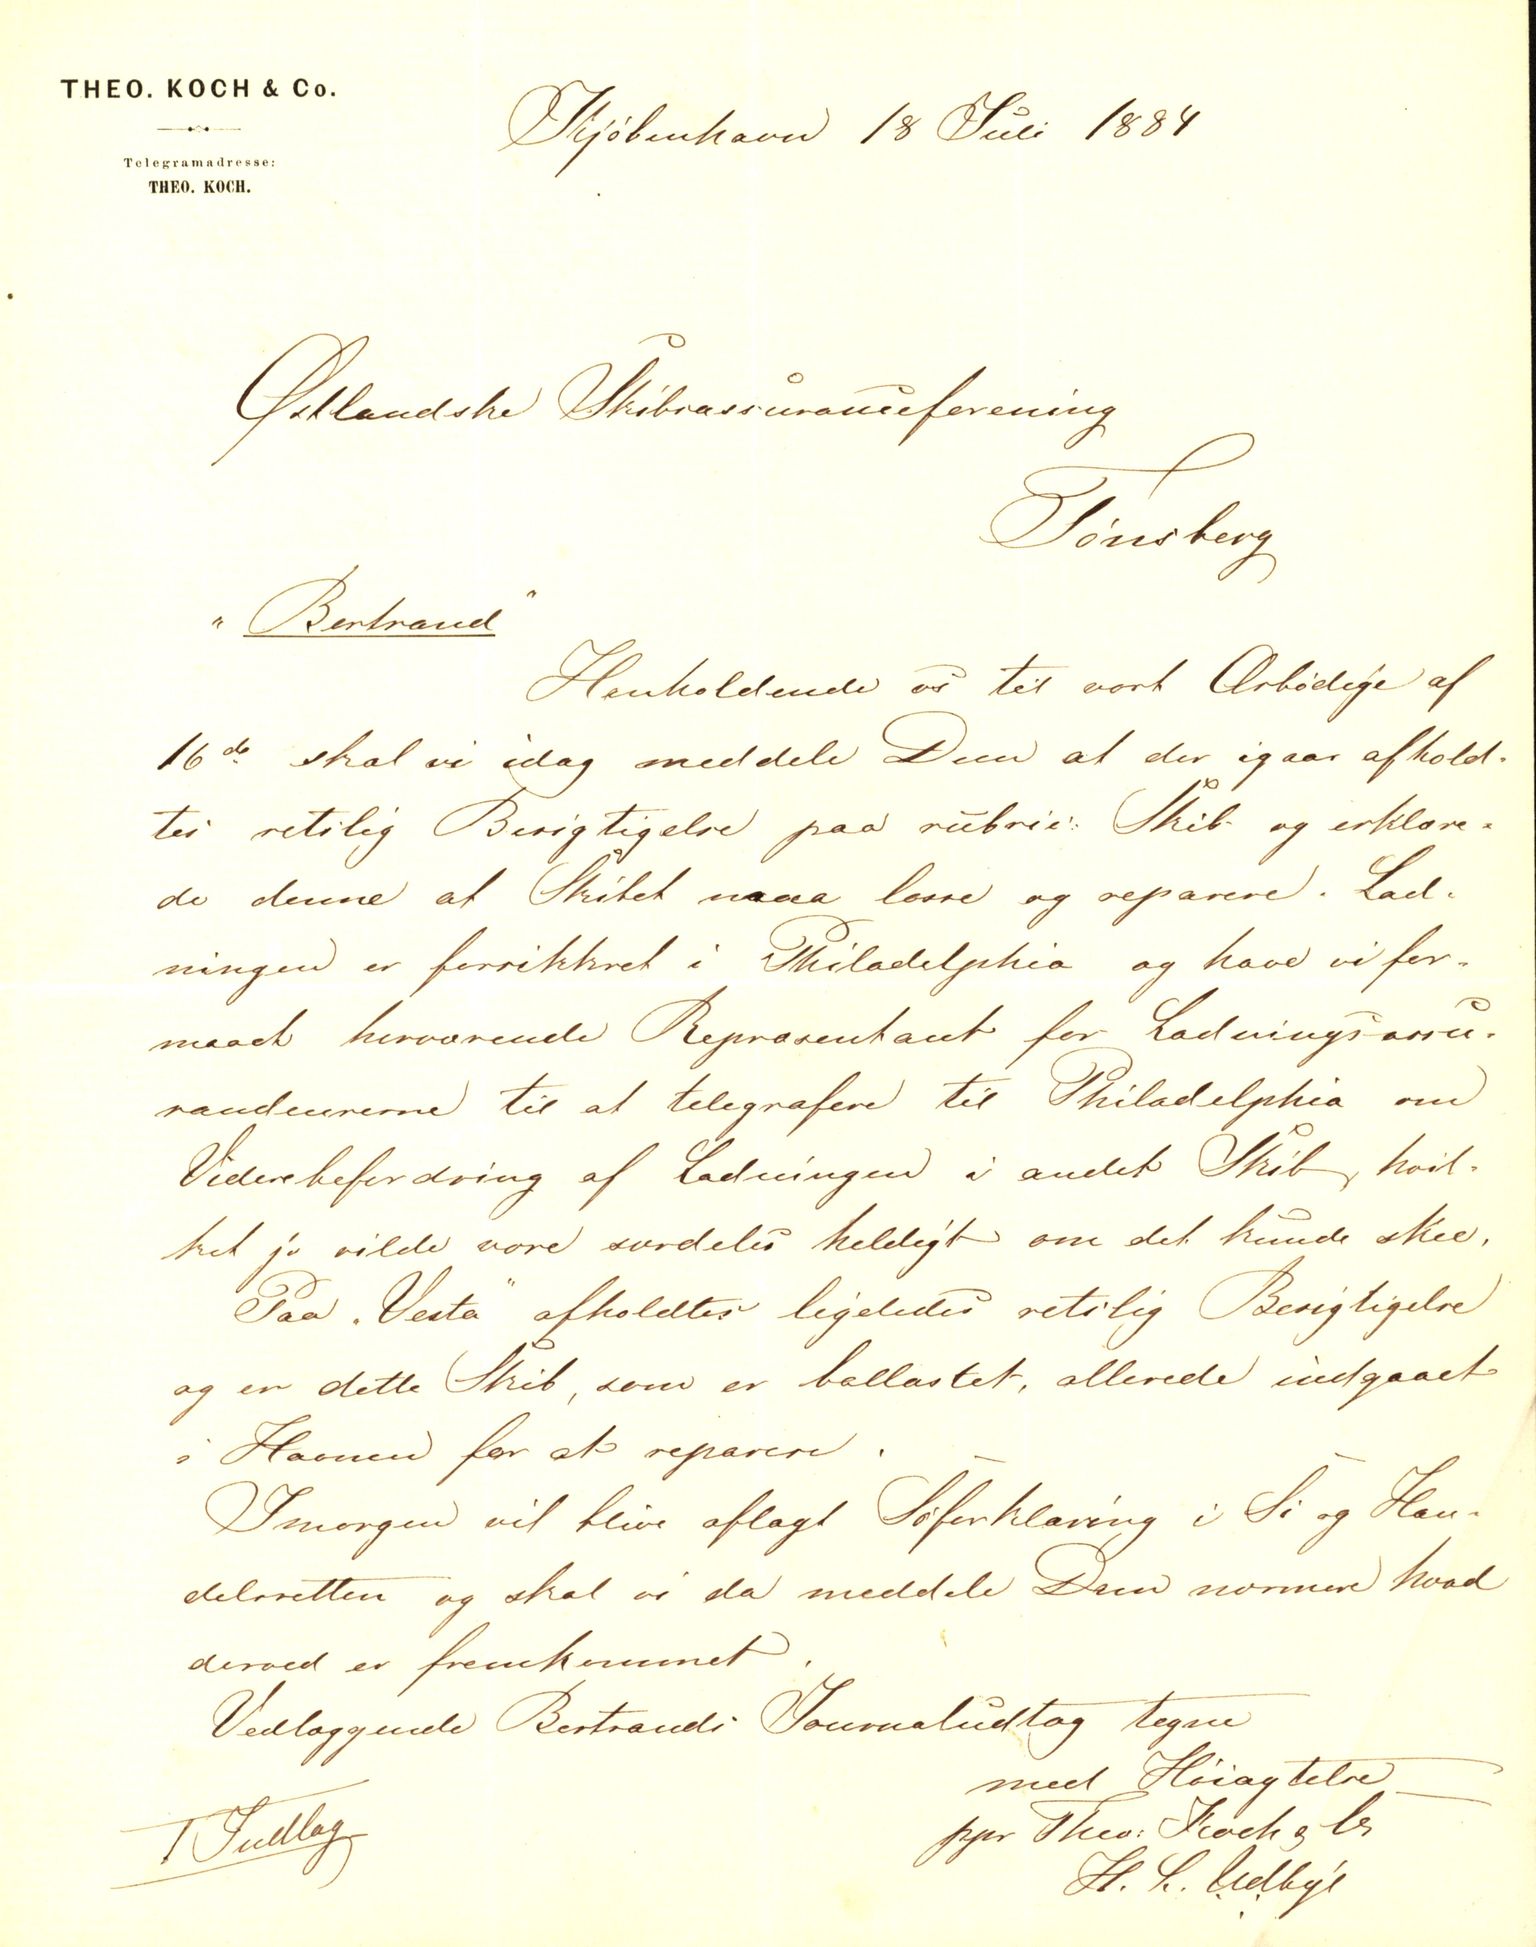 THEO. KOCH & Co.
Telegramadresse:
THEO. KOCH.
Kjöbenhavn 18 Juli 1884
Østlandske Skibsassuranceforening
Tönsberg
"Bertrand"
Henholdende os til vort Ærbödige af
16de skal vi idag meddele Dem at der igaar afhold-
tes retslig Besigtigelse paa rubric: Skib og erklære-
de denne at Skibet maa losse og reparere. Lad-
ningen er forsikkret i Philadelphia og have vi for-
maaet herværende Repræsentant for Ladningsassu-
randeurerne til at telegrafere til Philadelphia om
Viderebefordring af Ladningen i andet Skib, hvil-
ket jo vilde være særdeles heldigt om det kunde skee.
Paa "Vesta" afholdtes ligeledes retslig Besigtigelse
og er dette Skib, som er ballastet, allerede indgaaet
i Havnen for at reparere.
Imorgen vil blive aflagt Söforklaring i Sö og Han-
delsretten og skal vi da meddele Dem nærmere hvad
derved er fremkommet.
Vedlæggende Bertrands Journaludtog tegne
med Höiagtelse
ppr Theo: Koch & Co
H. L. Udbye
1 Indlæg